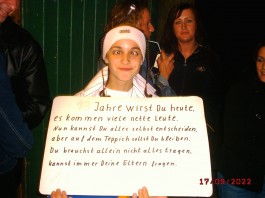 18 Jahre wirst Du heute,
es kommen viele nette Leute.
Nun kannst Du alles selbst entscheiden,
aber auf dem Teppich sollst Du bleiben.
Du brauchst allein nicht alles tragen,
kannst immer Deine Eltern fragen.
17/09/2022